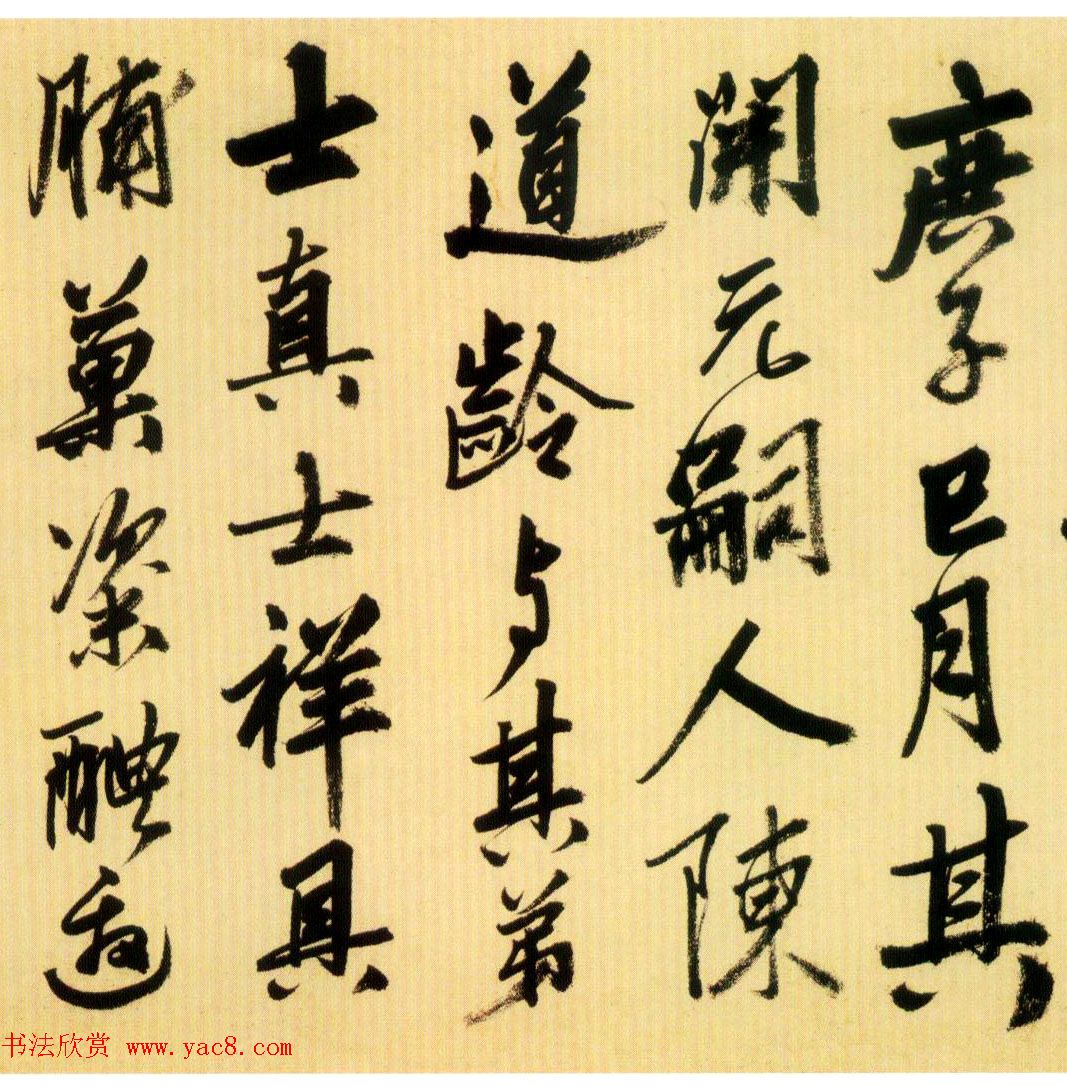 庚子巳月其
開元嗣人陳
道齡与其弟
士真士祥具
脯菓粢醴
书法欣赏 www.yac8.com